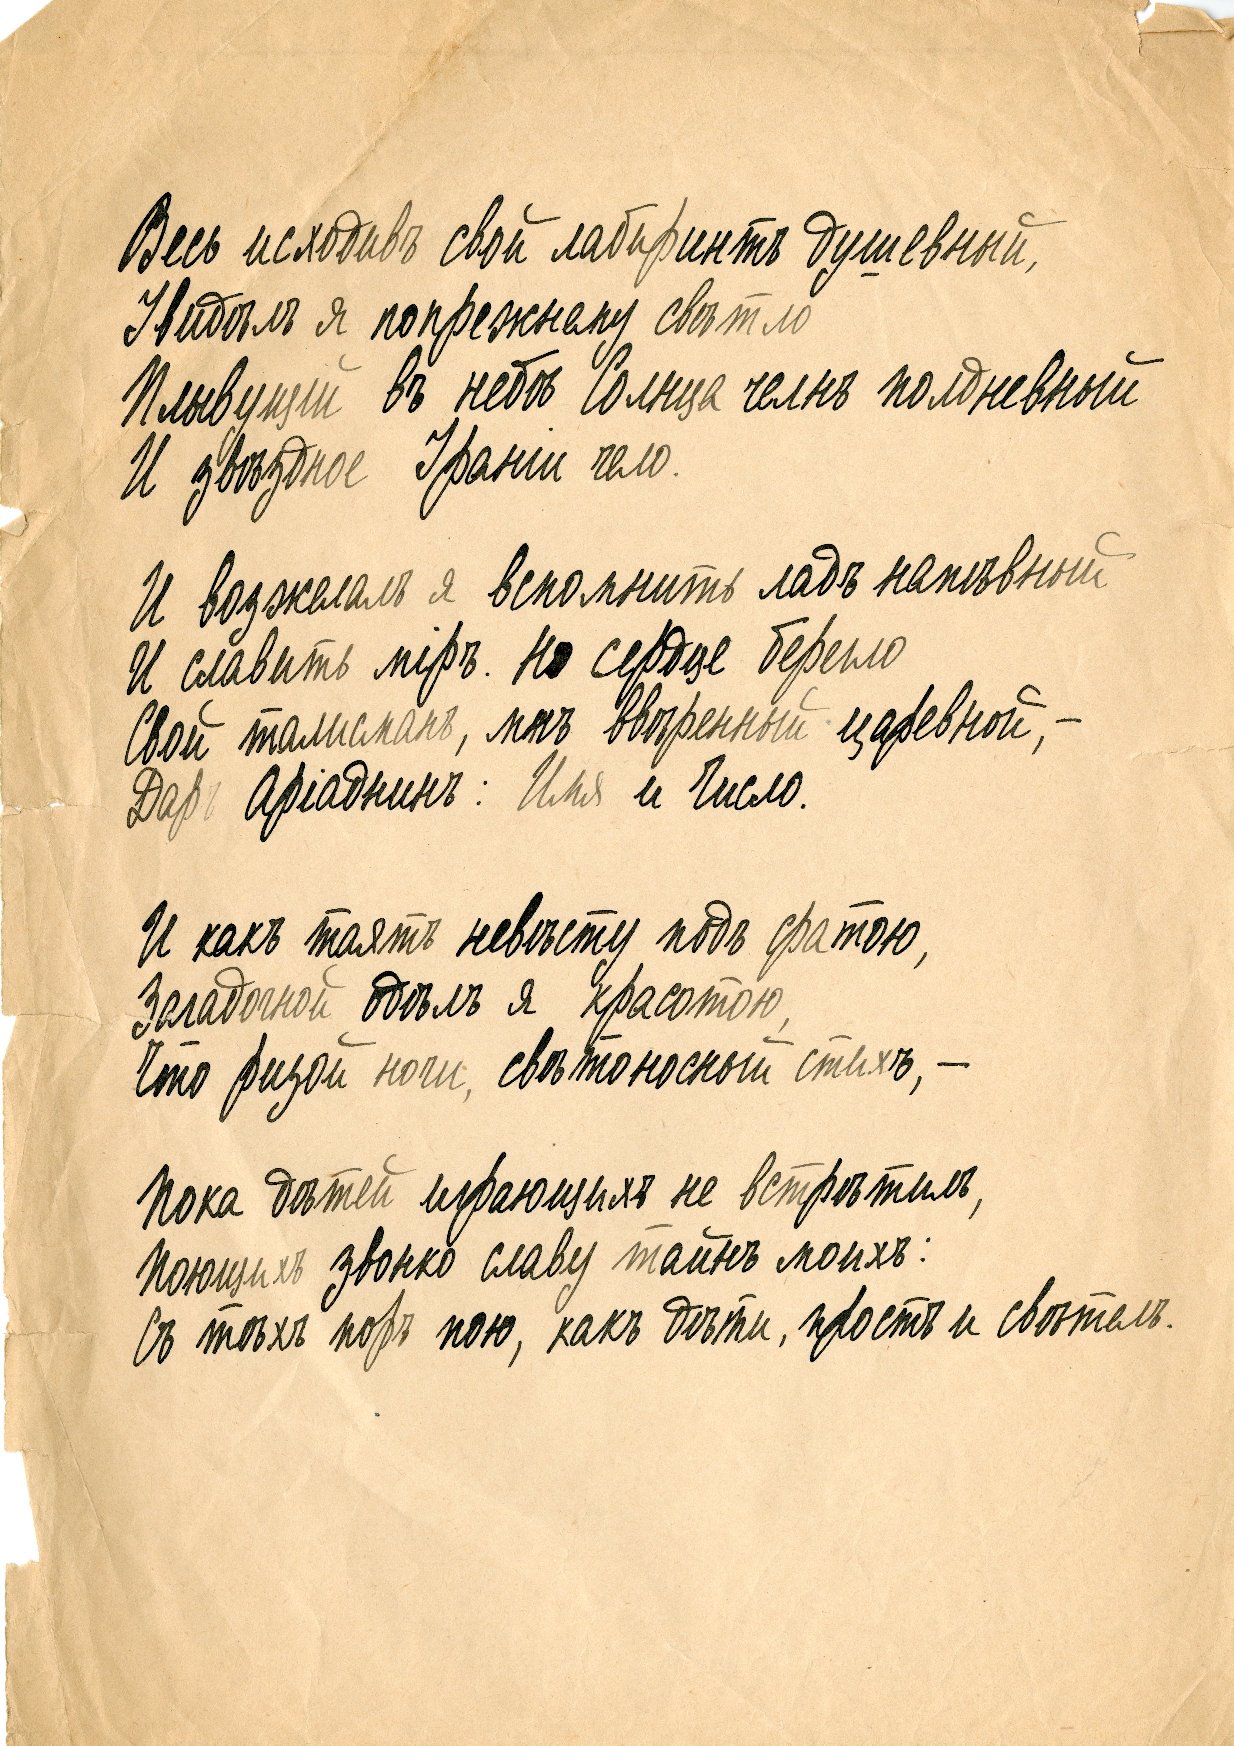 Весь исходивъ свой лабиринтъ душевный,
Увидѣлъ я попрежнему свѣтло
Плывущій въ небѣ Солнца челнъ полдневный
И звѣздное Ураніи чело.
И возжелалъ я вспомнить ладъ напѣвный
И славить міръ. Но сердце берегло
Свой талисманъ, мнѣ ввѣренный царевной, –
Даръ Аріаднинъ: Имя и Число.
И какъ таятъ невѣсту подъ фатою,
Загадочной одѣлъ я красотою,
Что ризой ночи, свѣтоносный стихъ, –
Пока дѣтей играющихъ не встрѣтилъ,
Поющихъ звонко славу тайнъ моихъ:
Съ тѣхъ поръ пою, какъ дѣти, простъ и свѣтелъ.